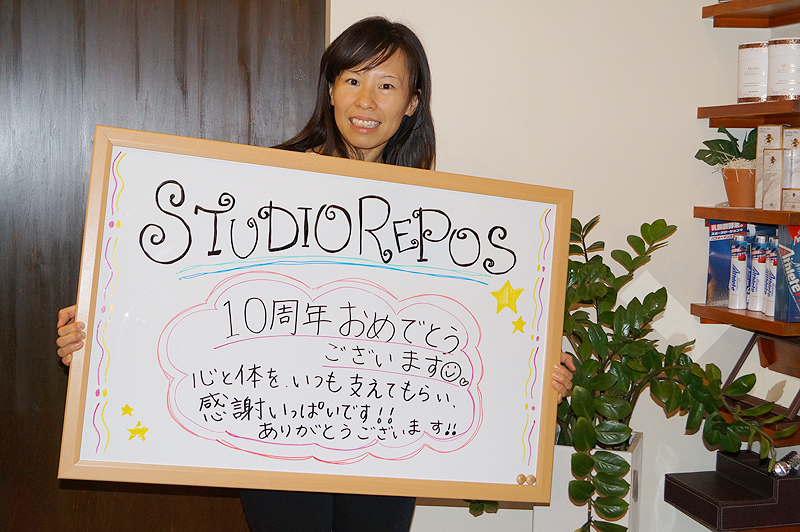 STUDIO REPOS
10周年おめでとう
ございます
心と体を、いつも支えてもらい、
感謝いっぱいです!!
ありがとうございます!!
Athlete
Athlete